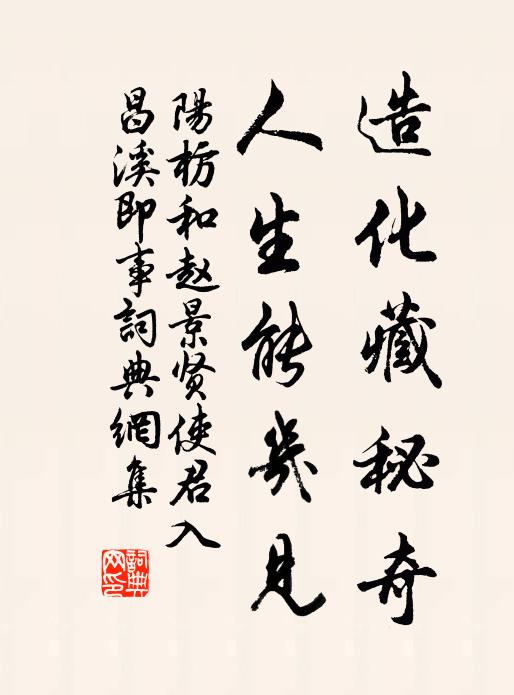 造化藏秘奇
人生能幾見
陽枋和赵景贤使君入
昌溪即事詞典網集
詞典网印